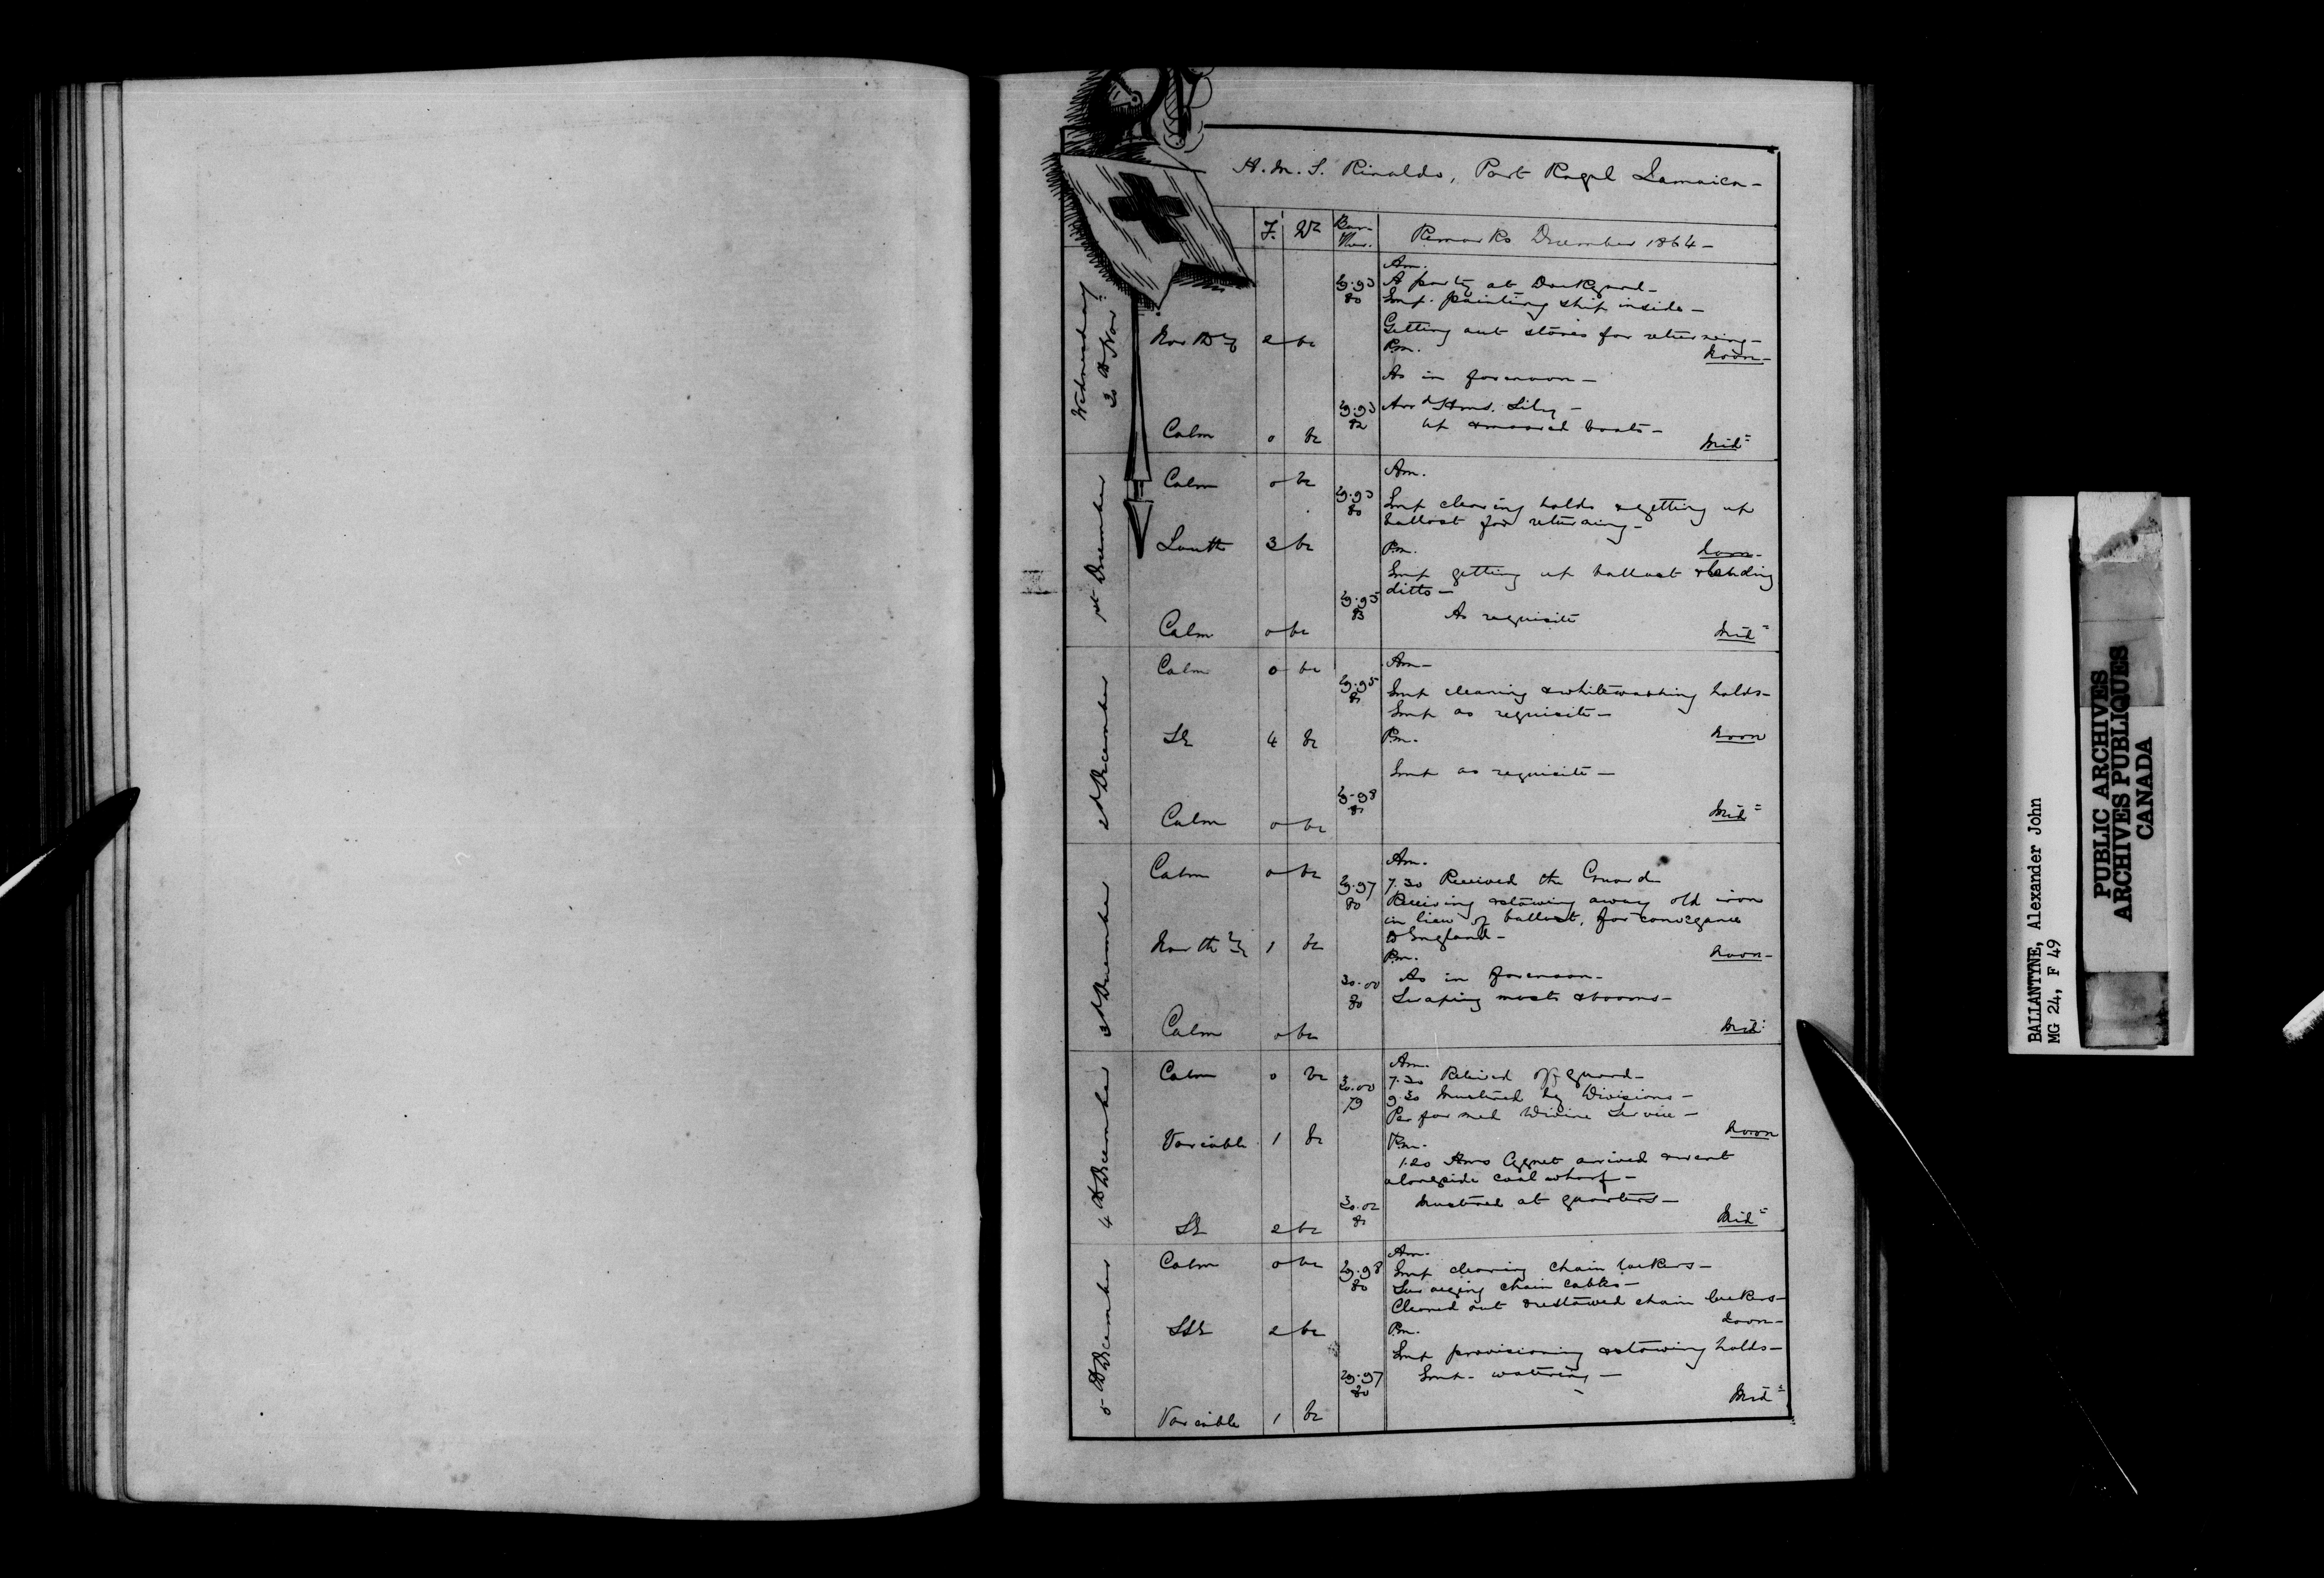 H.M.S. Rinaldo, Port Royal Jamaica -
F. Wr Bar. Ther. Remarks December 1864 -
Wednesday 30th Nov.
Am.
29.93 A party at Dockyard -
80 Emp. painting ship inside -
Getting out stores for returning -
North 2 bc Pm. Noon -
As in forenoon -
29.93 Arrd Hms. Lily -
82 up & moored boats -
Calm 0 bc Mid=
1st December
Calm 0 bc Am.
29.93 Emp clearing holds & getting up
80 ballast for returning -
South 3 bc Pm. Noon -
Emp getting up ballast & landing
29.95 ditto -
83 As requisite
Calm 0 bc Mid=
2d December
Calm 0 bc Am -
29.95 Emp cleaning & whitewashing holds -
81 Emp as requisite -
SE 4 bc Pm. Noon
Emp as requisite -
29.98
81
Calm 0 bc Mid=
3d December
Calm 0 bc Am.
29.97 7.30 Received the Guard
80 Receiving & stowing away old iron
in lieu of ballast, for conveyance
to England -
Northly 1 bc Pm. Noon -
30.00 As in forenoon -
80 Scraping masts & booms -
Calm 0 bc Mid:
4th December
Calm 0 bc Am.
30.00 7.30 Relieved off guard -
79 9.30 Mustered by Divisions -
Performed Divine Service -
Variable 1 bc Pm. Noon
1.20 Hms Cygnet arrived & went
alongside coal wharf -
30.02 Mustered at quarters -
81
SE 2 bc Mid=
5th December
Calm 0 bc Am.
29.98 Emp clearing chain lockers -
80 Surveying chain cables -
Cleaned out & restowed chain lockers -
SSE 2 bc Pm. Noon -
Emp provisioning & stowing holds -
29.97 Emp - watering -
80
Variable 1 bc Mid=
BALLANTYNE, Alexander John
MG 24, F 49
PUBLIC ARCHIVES
ARCHIVES PUBLIQUES
CANADA